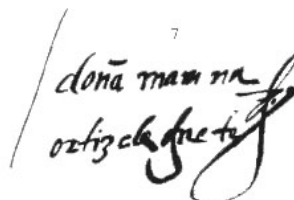 doña marina
ortiz de gaete